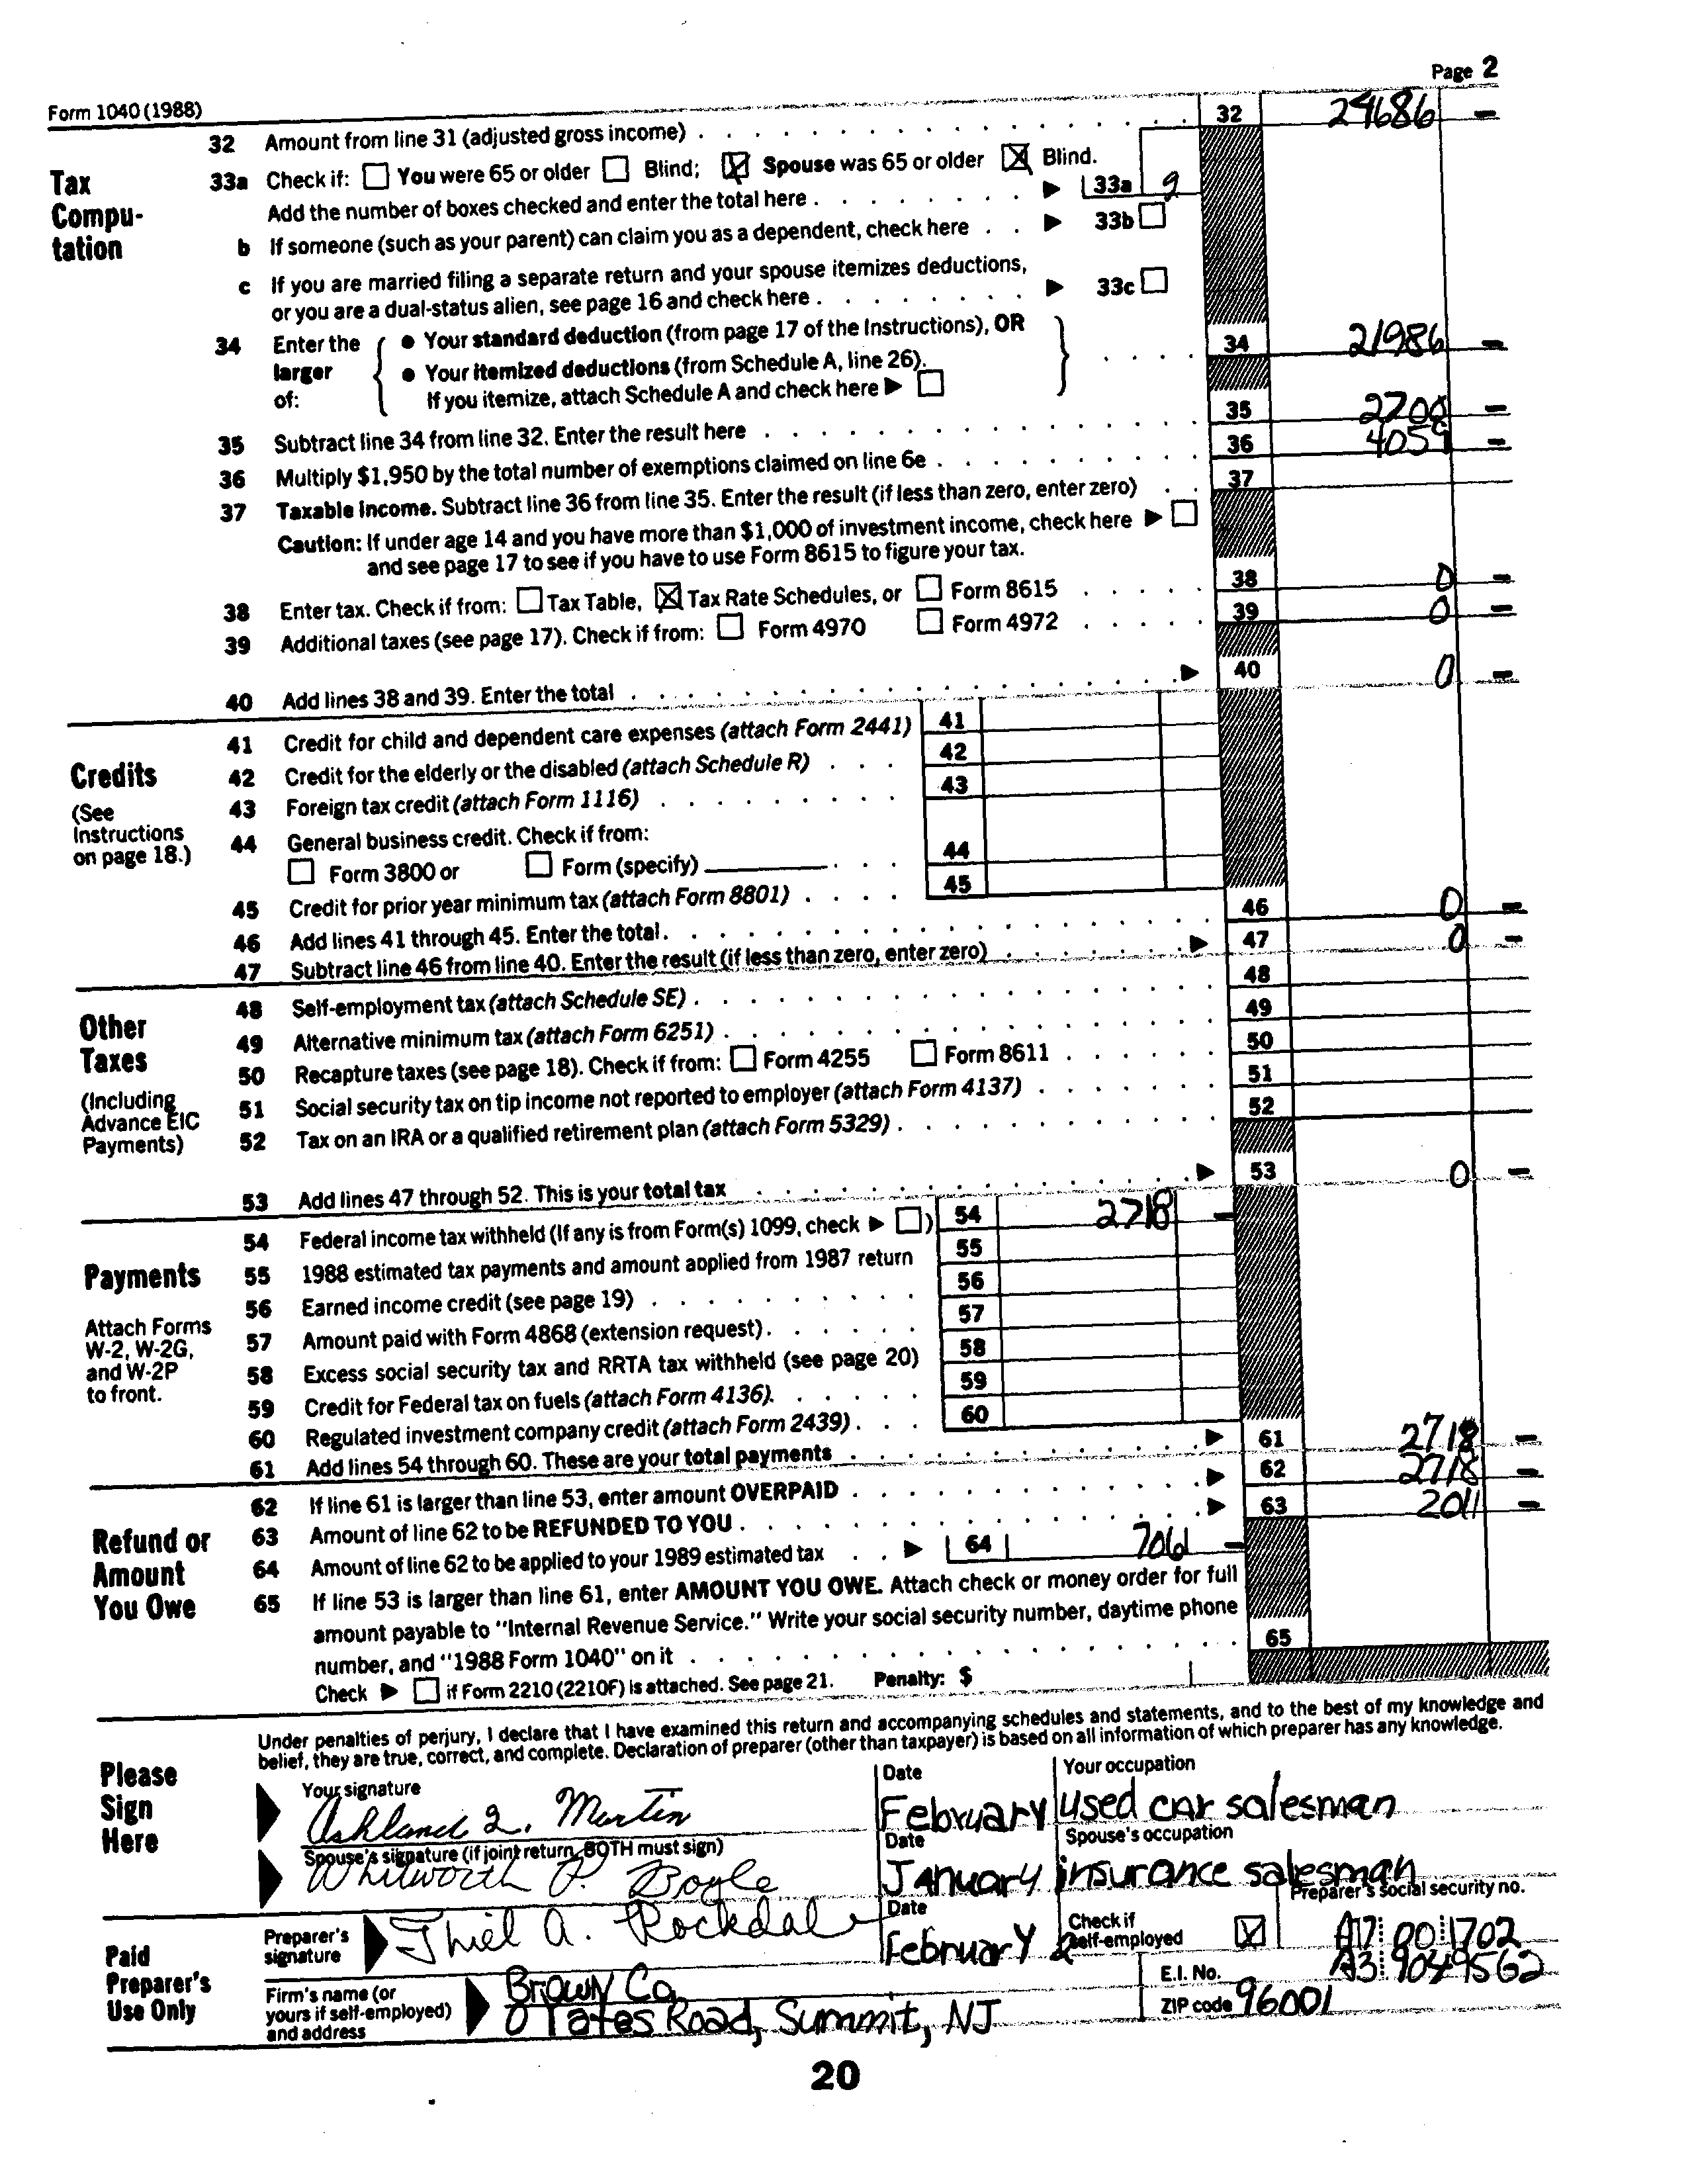 Page 2
Form 1040 (1988)
32 Amount from line 31 (adjusted gross income) 32 24686 -
Tax Compu- tation
33a Check if: You were 65 or older Blind; Spouse was 65 or older Blind.
Add the number of boxes checked and enter the total here 33a 2
b If someone (such as your parent) can claim you as a dependent, check here 33b
c If you are married filing a separate return and your spouse itemizes deductions,
or you are a dual-status alien, see page 16 and check here 33c
34 Enter the larger of:
● Your standard deduction (from page 17 of the Instructions), OR
● Your itemized deductions (from Schedule A, line 26).
If you itemize, attach Schedule A and check here
34 21986 -
35 Subtract line 34 from line 32. Enter the result here 35 2700 -
36 Multiply $1,950 by the total number of exemptions claimed on line 6e 36 4059 -
37 Taxable income. Subtract line 36 from line 35. Enter the result (if less than zero, enter zero) 37
Caution: If under age 14 and you have more than $1,000 of investment income, check here
and see page 17 to see if you have to use Form 8615 to figure your tax.
38 Enter tax. Check if from: Tax Table, Tax Rate Schedules, or Form 8615 38 0 -
39 Additional taxes (see page 17). Check if from: Form 4970 Form 4972 39 0 -
40 Add lines 38 and 39. Enter the total 40 0 -
Credits
(See Instructions on page 18.)
41 Credit for child and dependent care expenses (attach Form 2441) 41
42 Credit for the elderly or the disabled (attach Schedule R) 42
43 Foreign tax credit (attach Form 1116) 43
44 General business credit. Check if from:
Form 3800 or Form (specify) 44
45 Credit for prior year minimum tax (attach Form 8801) 45
46 Add lines 41 through 45. Enter the total 46 0 -
47 Subtract line 46 from line 40. Enter the result (if less than zero, enter zero) 47 0 -
Other Taxes
(Including Advance EIC Payments)
48 Self-employment tax (attach Schedule SE) 48
49 Alternative minimum tax (attach Form 6251) 49
50 Recapture taxes (see page 18). Check if from: Form 4255 Form 8611 50
51 Social security tax on tip income not reported to employer (attach Form 4137) 51
52 Tax on an IRA or a qualified retirement plan (attach Form 5329) 52
53 Add lines 47 through 52. This is your total tax 53 0 -
Payments
Attach Forms W-2, W-2G, and W-2P to front.
54 Federal income tax withheld (If any is from Form(s) 1099, check ) 54 2718 -
55 1988 estimated tax payments and amount applied from 1987 return 55
56 Earned income credit (see page 19) 56
57 Amount paid with Form 4868 (extension request) 57
58 Excess social security tax and RRTA tax withheld (see page 20) 58
59 Credit for Federal tax on fuels (attach Form 4136) 59
60 Regulated investment company credit (attach Form 2439) 60
61 Add lines 54 through 60. These are your total payments 61 2718 -
Refund or Amount You Owe
62 If line 61 is larger than line 53, enter amount OVERPAID 62 2718 -
63 Amount of line 62 to be REFUNDED TO YOU 63 2011 -
64 Amount of line 62 to be applied to your 1989 estimated tax 64 706 -
65 If line 53 is larger than line 61, enter AMOUNT YOU OWE. Attach check or money order for full
amount payable to "Internal Revenue Service." Write your social security number, daytime phone
number, and "1988 Form 1040" on it 65
Check if Form 2210 (2210F) is attached. See page 21. Penalty: $
Please Sign Here
Under penalties of perjury, I declare that I have examined this return and accompanying schedules and statements, and to the best of my knowledge and
belief, they are true, correct, and complete. Declaration of preparer (other than taxpayer) is based on all information of which preparer has any knowledge.
Your signature Date Your occupation
Ashland Q. Martin February used car salesman
Spouse's signature (if joint return, BOTH must sign) Date Spouse's occupation
Whitworth P. Boyle January insurance salesman
Paid Preparer's Use Only
Preparer's signature Thiel A. Rockdale Date February 2 Check if self-employed Preparer's social security no. A17 00 1702
Firm's name (or yours if self-employed) and address Brown Co E.I. No. A3 9049562
0 Yates Road, Summit, NJ ZIP code 96001
20